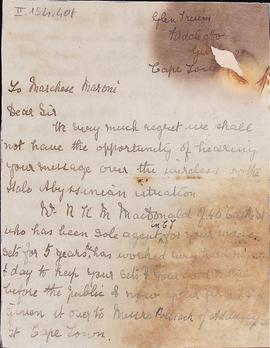 II 194.408
Glen Truim
Cape Town
To Marchese Maroni
Dear Sir
We very much regret we shall
not have the opportunity of hearing
your message over the wireless on the
Italo Abyssinian situation
Mr. N K M MacDonald of 40
who has been sole agent for your
sets for 5 years has worked very
& day to keep your sets & your
before the public & now
given it over to Messrs Pollack of Adderley
St Cape Town.